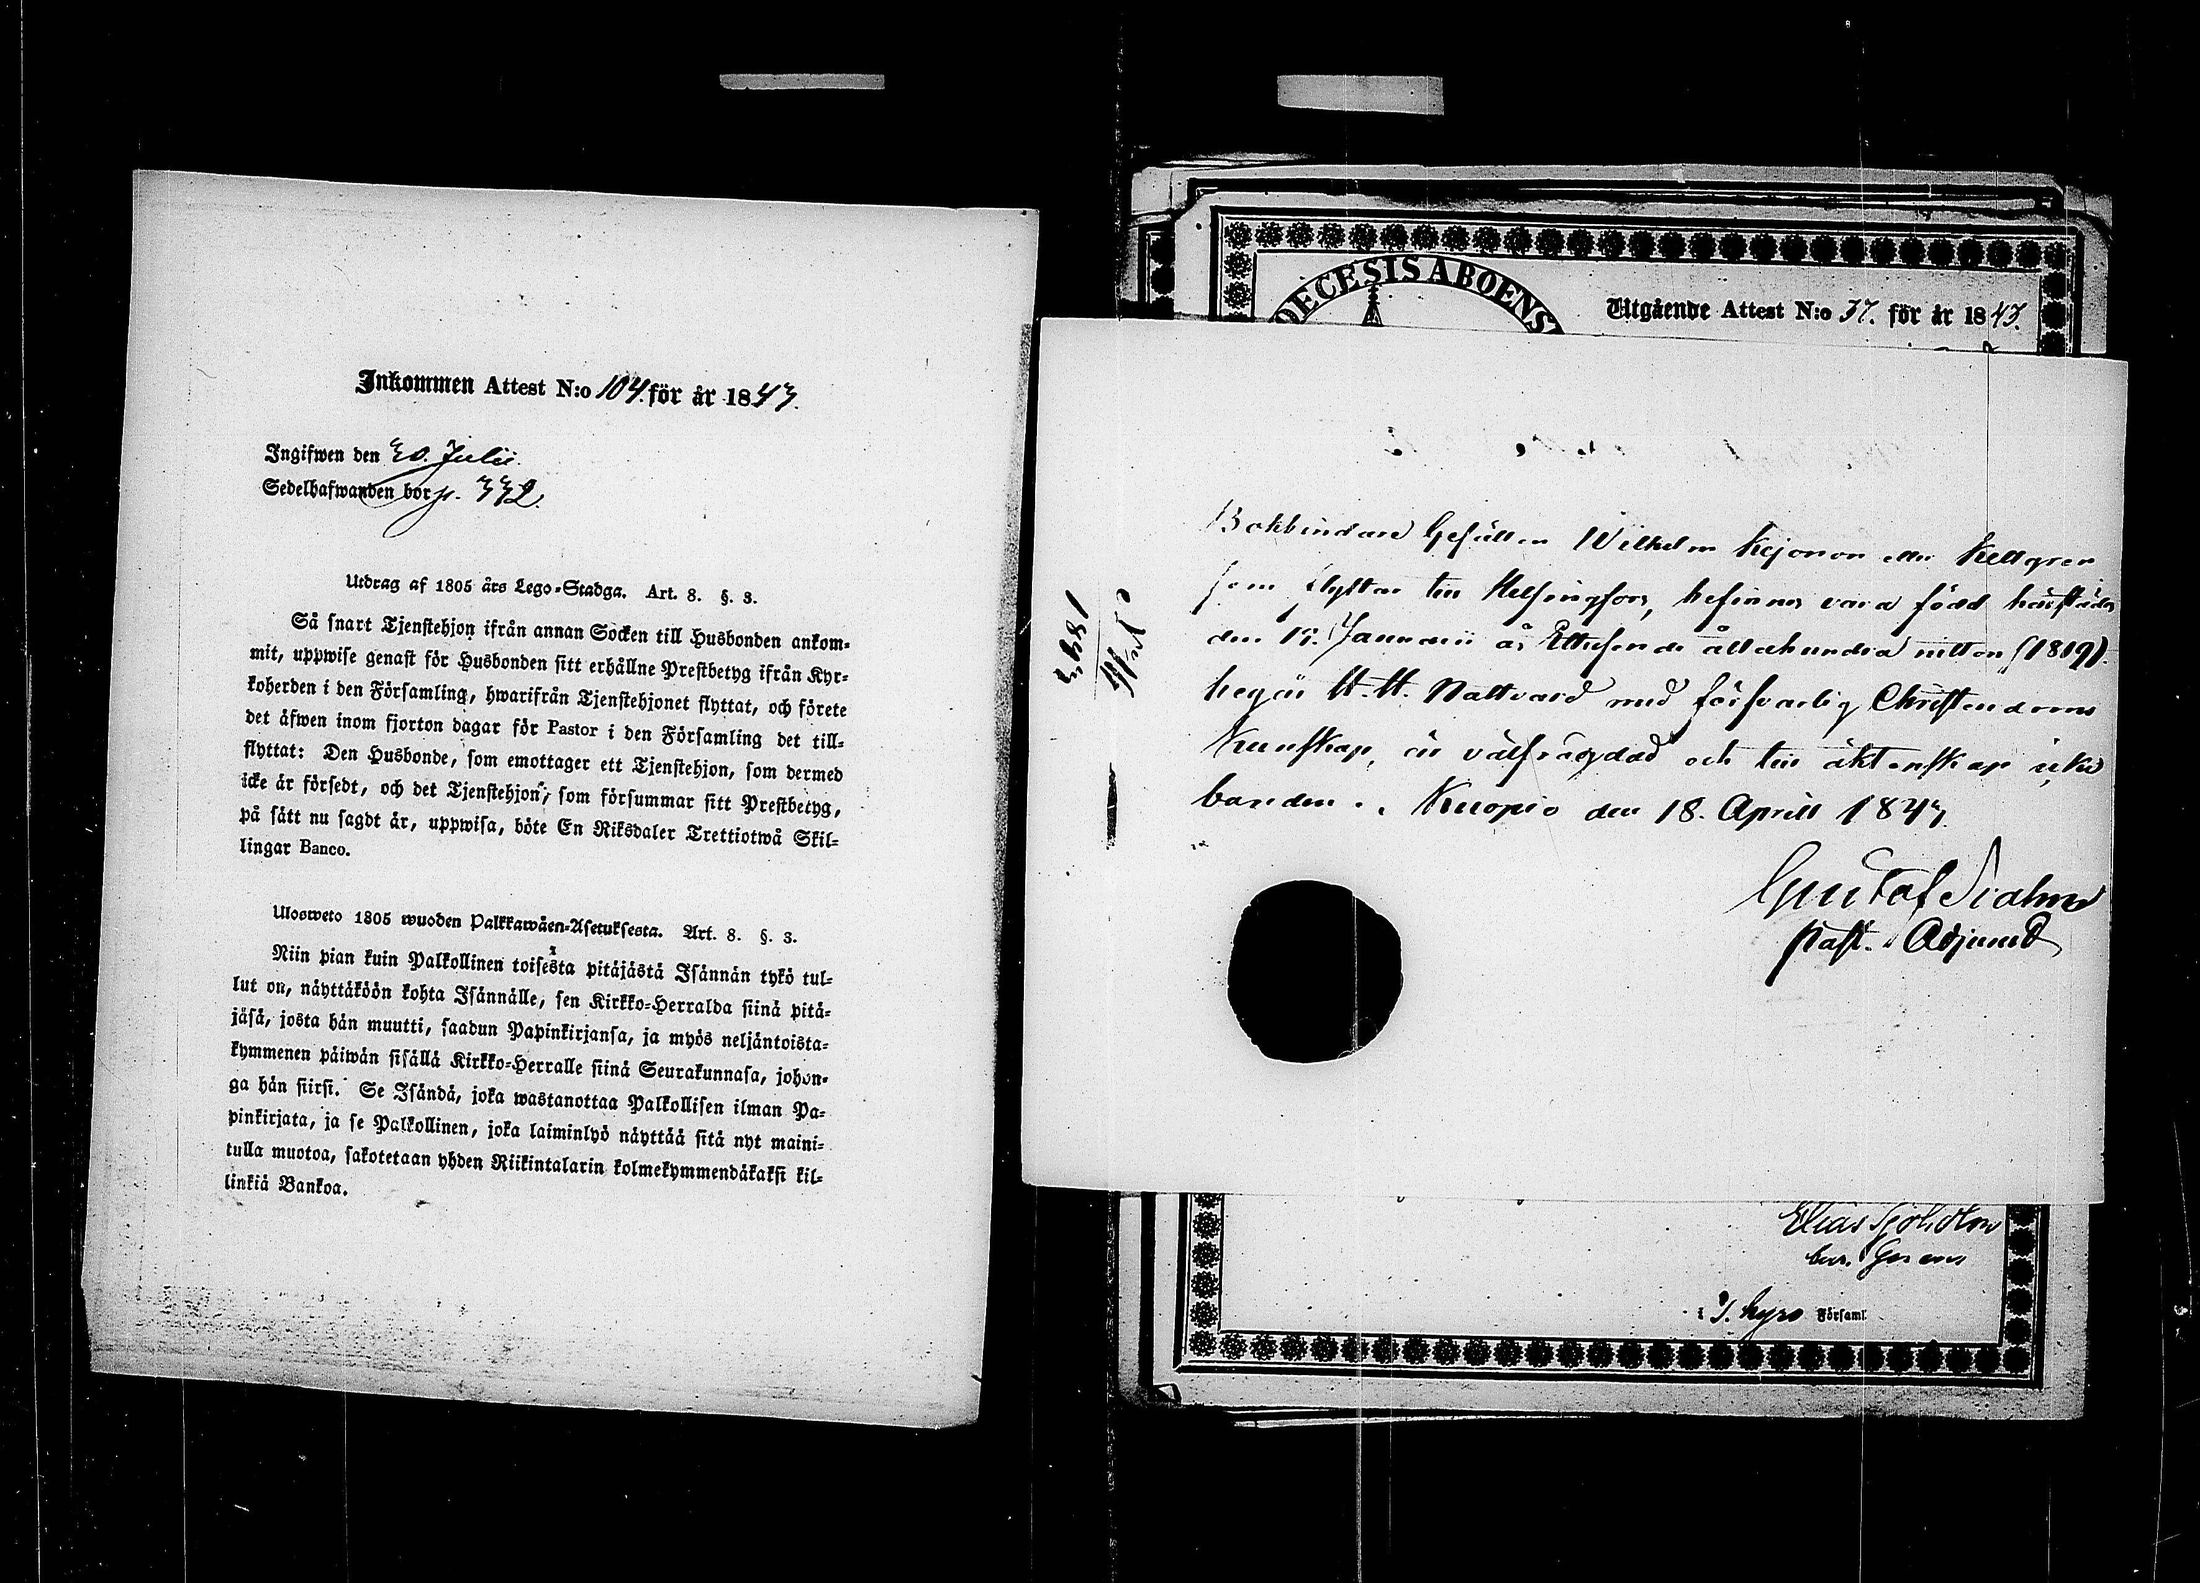 Inkommen Attest N:o 104. för år 1843.
Ingifwen den 30. Julii.
Sedelhafwanden bor p. 332.
Utdrag af 1805 års Lego-Stadga. Art. 8. §. 3.
Så snart Tjenstehjon ifrån annan Socken till Husbonden ankom-
mit, uppwise genast för Husbonden sitt erhållne Prestbetyg ifrån Kyr-
koherden i den Församling, hwarifrån Tjenstehjonet flyttat, och förete
det äfwen inom fjorton dagar för Pastor i den Församling det till-
flyttat: Den Husbonde, som emottager ett Tjenstehjon, som dermed
icke är försedt, och det Tjenstehjon, som försummar sitt Prestbetyg,
på sätt nu sagdt är, uppwisa, böte En Riksdaler Trettiotwå Skil-
lingar Banco.
Ulosweto 1805 wuoden Palkkawäen-Asetuksesta. Art. 8. §. 3.
Niin pian kuin Palkollinen toisesta pitäjästä Isännän tykö tul-
lut on, näyttäköön kohta Isännälle, sen Kirkko-Herralda siinä pitä-
jäsä, josta hän muutti, saadun Papinkirjansa, ja myös neljäntoista-
kymmenen päiwän sisällä Kirkko-Herralle siinä Seurakunnasa, johon-
ga hän siirsi. Se Isändä, joka wastanottaa Palkollisen ilman Pa-
pinkirjata, ja se Palkollinen, joka laiminlyö näyttää sitä nyt maini-
tulla muotoa, sakotetaan yhden Riikintalarin kolmekymmendäkaksi kil-
linkiä Bankoa.
DECESIS ABOENS
Utgående Attest N:o 37. för år 1843.
Bokbindare Gesällen Wilhelm Kejonen eller Kellgren
som flyttar till Helsingfors, befinnes vara född härstädes
den 19. Januarii år Ettusende åttahundra nitton (1819).
begår H. H. Nattvard med försvarlig Christendoms
Kunskap, är välfrägdad och till äktenskap icke
bunden. Kuopio den 18. Aprill 1843.
Gustaf
Past. Adjunct
1843
Elias
i I. Kyro Församl.